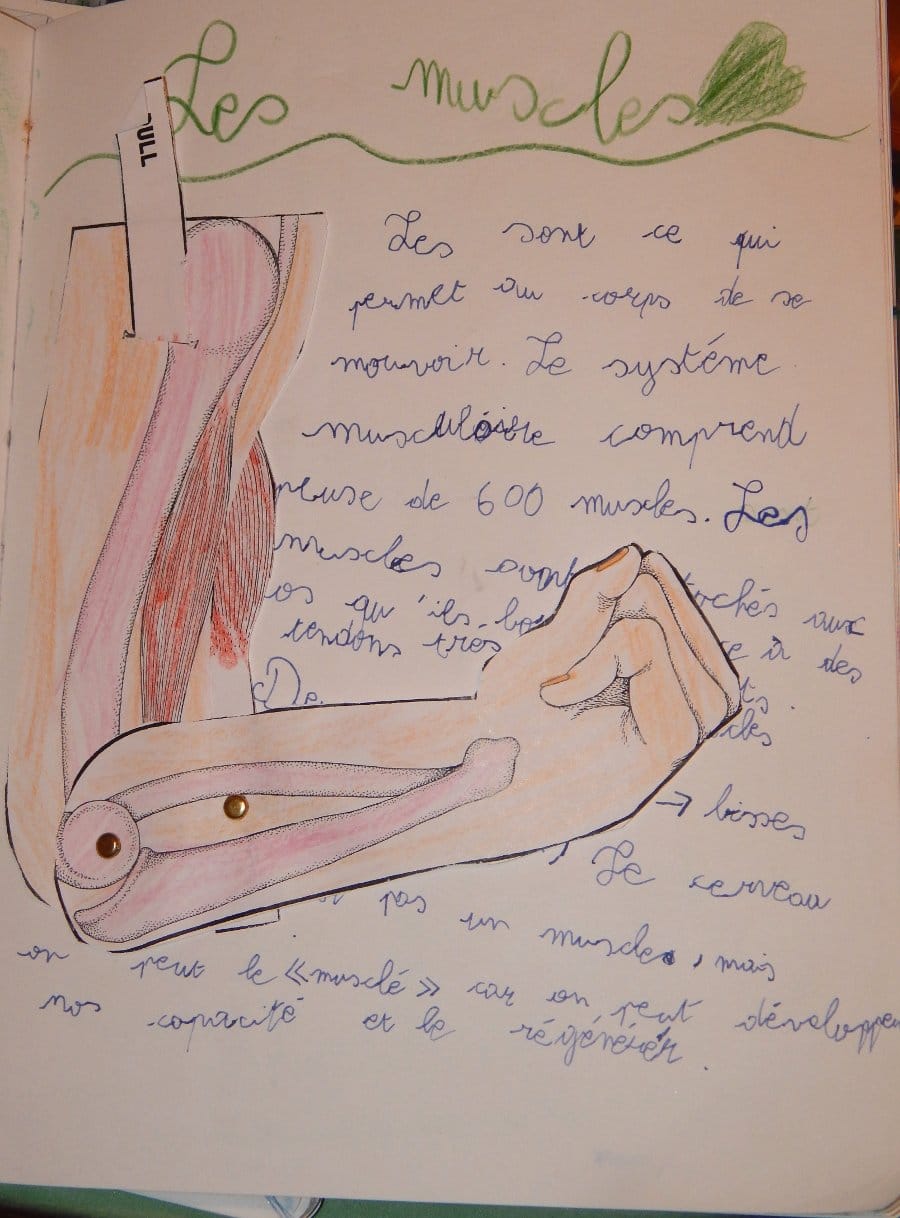 Les muscles
PULL
Les sont ce qui
permet au corps de se
mouvoir. Le systéme
musculaire comprend
pluse de 600 muscles. Les
muscles sont
os qu'ils aux
tendons très à des
De
→ lisses
Le cerveau
pas un muscle, mais
on peut le «musclé» car on peut développer
nos capacité et le régénérér.